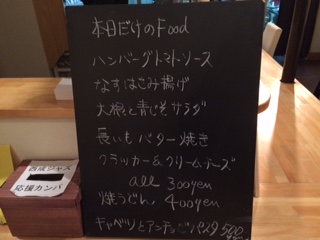 本日だけのFood
ハンバーグトマトソース
なすはさみ揚げ
大根と青じそサラダ
長いもバター焼き
クラッカー&クリームチーズ
all 300yen
焼うどん 400yen
キャベツとアンチョビパスタ 500
西成ジャズ
応援カンパ